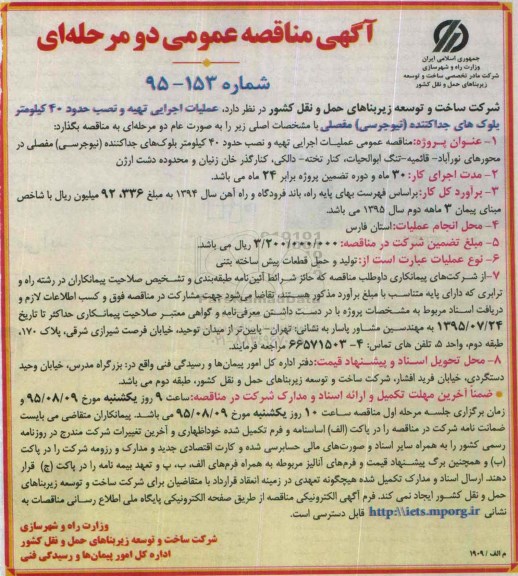 آگهی مناقصه عمومی دو مرحله‌ای
جمهوری اسلامی ایران
وزارت راه و شهرسازی
شرکت مادر تخصصی ساخت و توسعه
زیربناهای حمل و نقل کشور
شماره ۱۵۳- ۹۵
شرکت ساخت و توسعه زیربناهای حمل و نقل کشور در نظر دارد، عملیات اجرایی تهیه و نصب حدود ۴۰ کیلومتر
بلوک های جداکننده (نیوجرسی) مفصلی با مشخصات اصلی زیر را به صورت عام دو مرحله‌ای به مناقصه بگذارد:
۱- عنوان پروژه: مناقصه عمومی عملیات اجرایی تهیه و نصب حدود ۴۰ کیلومتر بلوک‌های جداکننده (نیوجرسی) مفصلی در
محورهای نورآباد- قائمیه-تنگ ابوالحیات، کنار تخته- دالکی، کنارگذر خان زنیان و محدوده دشت ارژن
۲- مدت اجرای کار: ۳۰ ماه و دوره تضمین پروژه برابر ۲۴ ماه می باشد.
۳- برآورد کل کار: براساس فهرست بهای پایه راه، باند فرودگاه و راه آهن سال ۱۳۹۴ به مبلغ ۹۲،۳۳۶ میلیون ریال با شاخص
مبنای پیمان ۳ ماهه دوم سال ۱۳۹۵ می باشد.
۴- محل انجام عملیات: استان فارس
۵- مبلغ تضمین شرکت در مناقصه: ۳/۲۰۰/۰۰۰/۰۰۰ ریال می باشد.
۶- نوع عملیات عبارت است از: تولید و حمل قطعات پیش ساخته بتنی
۷- از شرکت‌های پیمانکاری داوطلب مناقصه که حائز شرائط آئین‌نامه طبقه‌بندی و تشخیص صلاحیت پیمانکاران در رشته راه و
ترابری که دارای پایه متناسب با مبلغ برآورد مذکور هستند، تقاضا می‌شود جهت مشارکت در مناقصه فوق و کسب اطلاعات لازم و
دریافت اسناد مربوط به مشخصات پروژه با در دست داشتن معرفی‌نامه و گواهی معتبر صلاحیت پیمانکاری حداکثر تا تاریخ
۱۳۹۵/۰۷/۲۴ به مهندسین مشاور پاسار به نشانی: تهران- پایین‌تر از میدان توحید، خیابان فرصت شیرازی شرقی، پلاک ۱۷۰،
طبقه دوم، واحد ۵، تلفن های تماس: ۴- ۶۶۵۷۱۵۰۳ مراجعه فرمایند.
۸- محل تحویل اسناد و پیشنهاد قیمت: دفتر اداره کل امور پیمان‌ها و رسیدگی فنی واقع در: بزرگراه مدرس، خیابان وحید
دستگردی، خیابان فرید افشار، شرکت ساخت و توسعه زیربناهای حمل و نقل کشور، طبقه دوم می باشد.
ضمناً آخرین مهلت تکمیل و ارائه اسناد و مدارک شرکت در مناقصه: ساعت ۹ روز یکشنبه مورخ ۹۵/۰۸/۰۹ و
زمان برگزاری جلسه مرحله اول مناقصه ساعت ۱۰ روز یکشنبه مورخ ۹۵/۰۸/۰۹ می باشد. پیمانکاران متقاضی می بایست
ضمانت نامه شرکت در مناقصه را در پاکت (الف) اساسنامه و فرم تکمیل شده خوداظهاری و آخرین تغییرات شرکت مندرج در روزنامه
رسمی کشور را به همراه سایر اسناد و صورت‌های مالی حسابرسی شده و کارت اقتصادی جدید و مدارک و رزومه شرکت را در پاکت
(ب) و همچنین برگ پیشنهاد قیمت و فرم‌های آنالیز مربوطه به همراه فرم‌های الف، ب، پ و تعهد بیمه نامه را در پاکت (ج) قرار
دهند. ارسال اسناد و مدارک تکمیل شده هیچگونه تعهدی در زمینه انعقاد قرارداد با متقاضیان برای شرکت ساخت و توسعه زیربناهای
حمل و نقل کشور ایجاد نمی کند. فرم آگهی الکترونیکی مناقصه از طریق صفحه الکترونیکی پایگاه ملی اطلاع رسانی مناقصات به
نشانی http:\\iets.mporg.ir قابل دسترسی است.
وزارت راه و شهرسازی
شرکت ساخت و توسعه زیربناهای حمل و نقل کشور
اداره کل امور پیمان‌ها و رسیدگی فنی
م الف / ۱۹۰۹